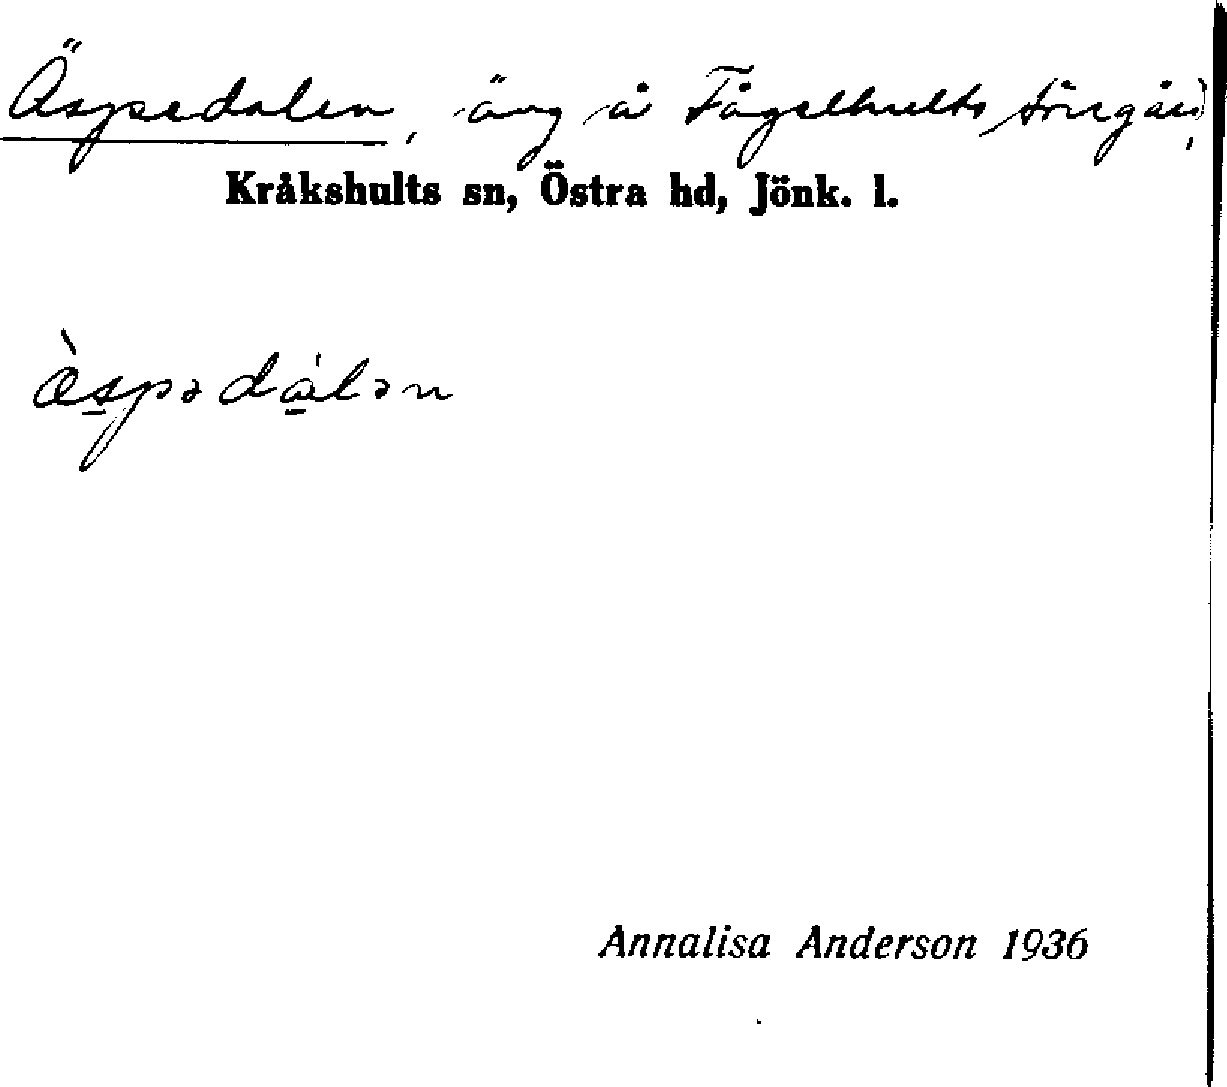 Äspedalen, äng å Fågelhults Sörgård,
Kråkshults sn, Östra hd, Jönk. l.
æ̀spədálən
Annalisa Anderson 1936